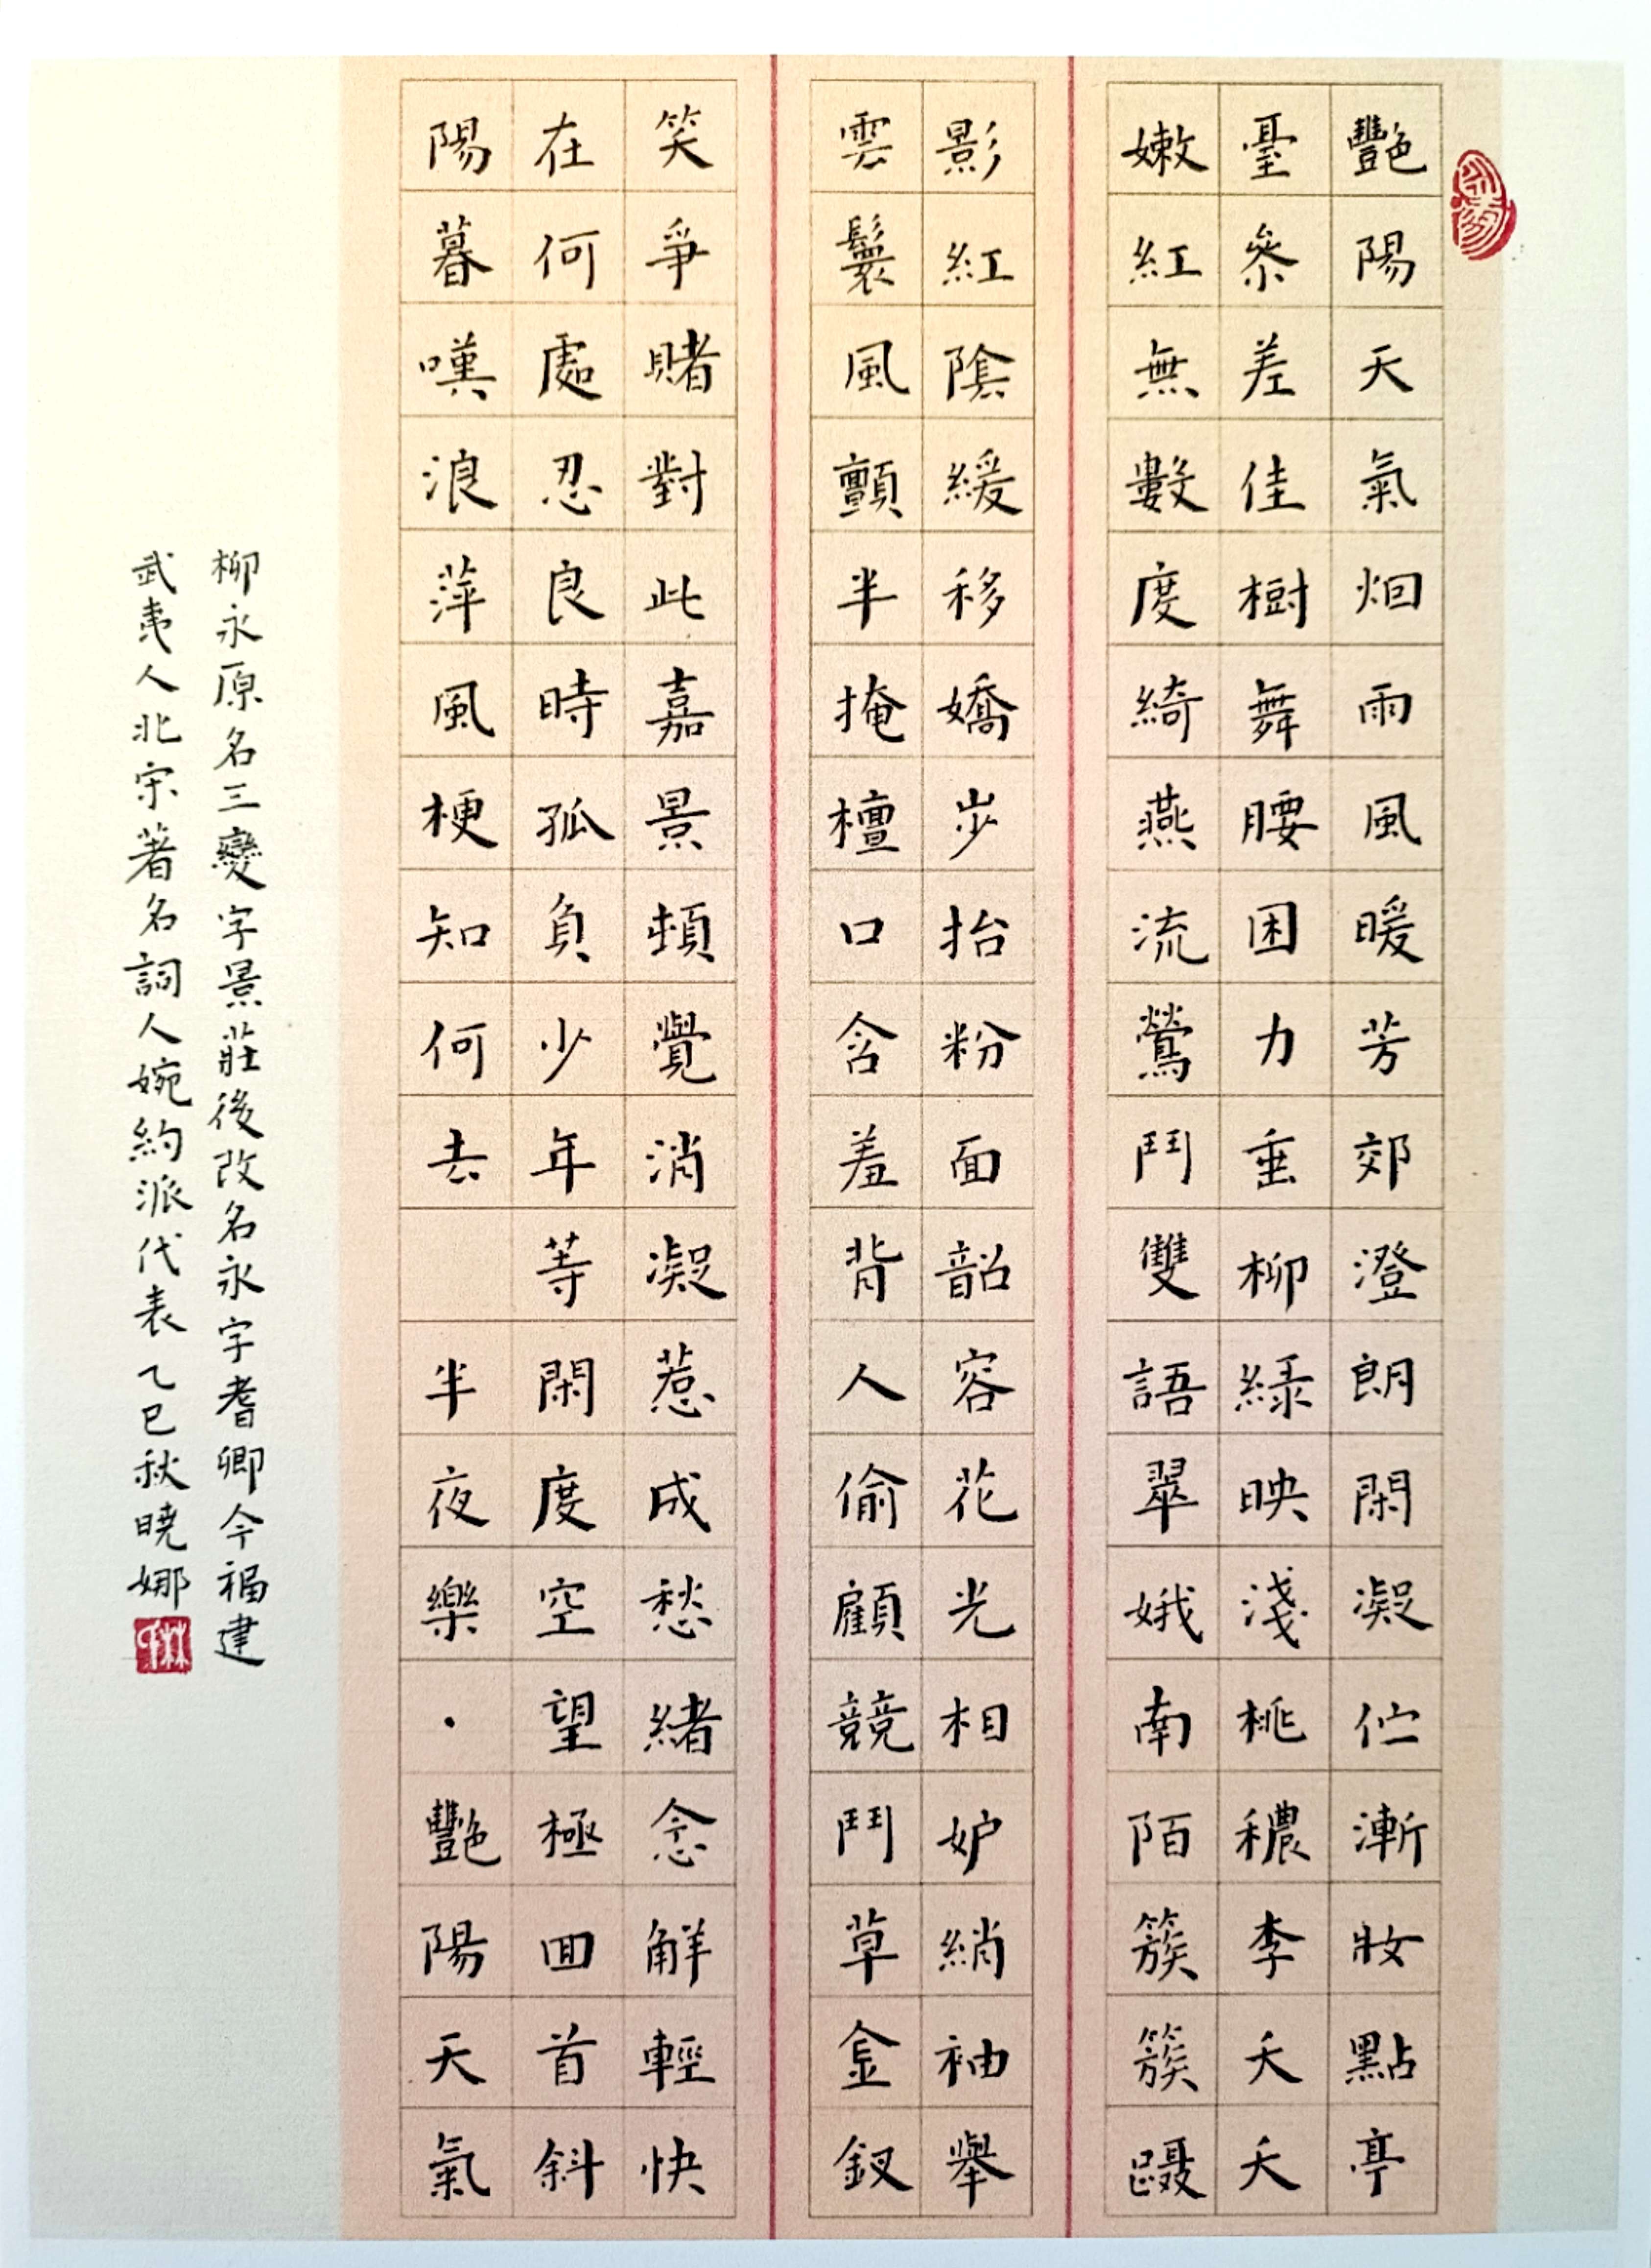 艷陽天氣烟雨風暖芳郊澄朗閑凝伫漸妝點亭
臺參差佳樹舞腰困力垂柳綠映淺桃穠李夭夭
嫩紅無數度綺燕流鶯鬥雙語翠娥南陌簇簇躡
影紅陰緩移嬌步抬粉面韶容花光相妒絳袖舉
雲鬟風顫半掩檀口含羞背人偷顧競鬥草金釵
笑爭賭對此嘉景頓覺消凝惹成愁緒念解輕快
在何處忍良時孤負少年等閑度空望極回首斜
陽暮嘆浪萍風梗知何去 半夜樂·艷陽天氣
柳永原名三變字景莊後改名永字耆卿今福建
武夷人北宋著名詞人婉約派代表乙巳秋曉娜